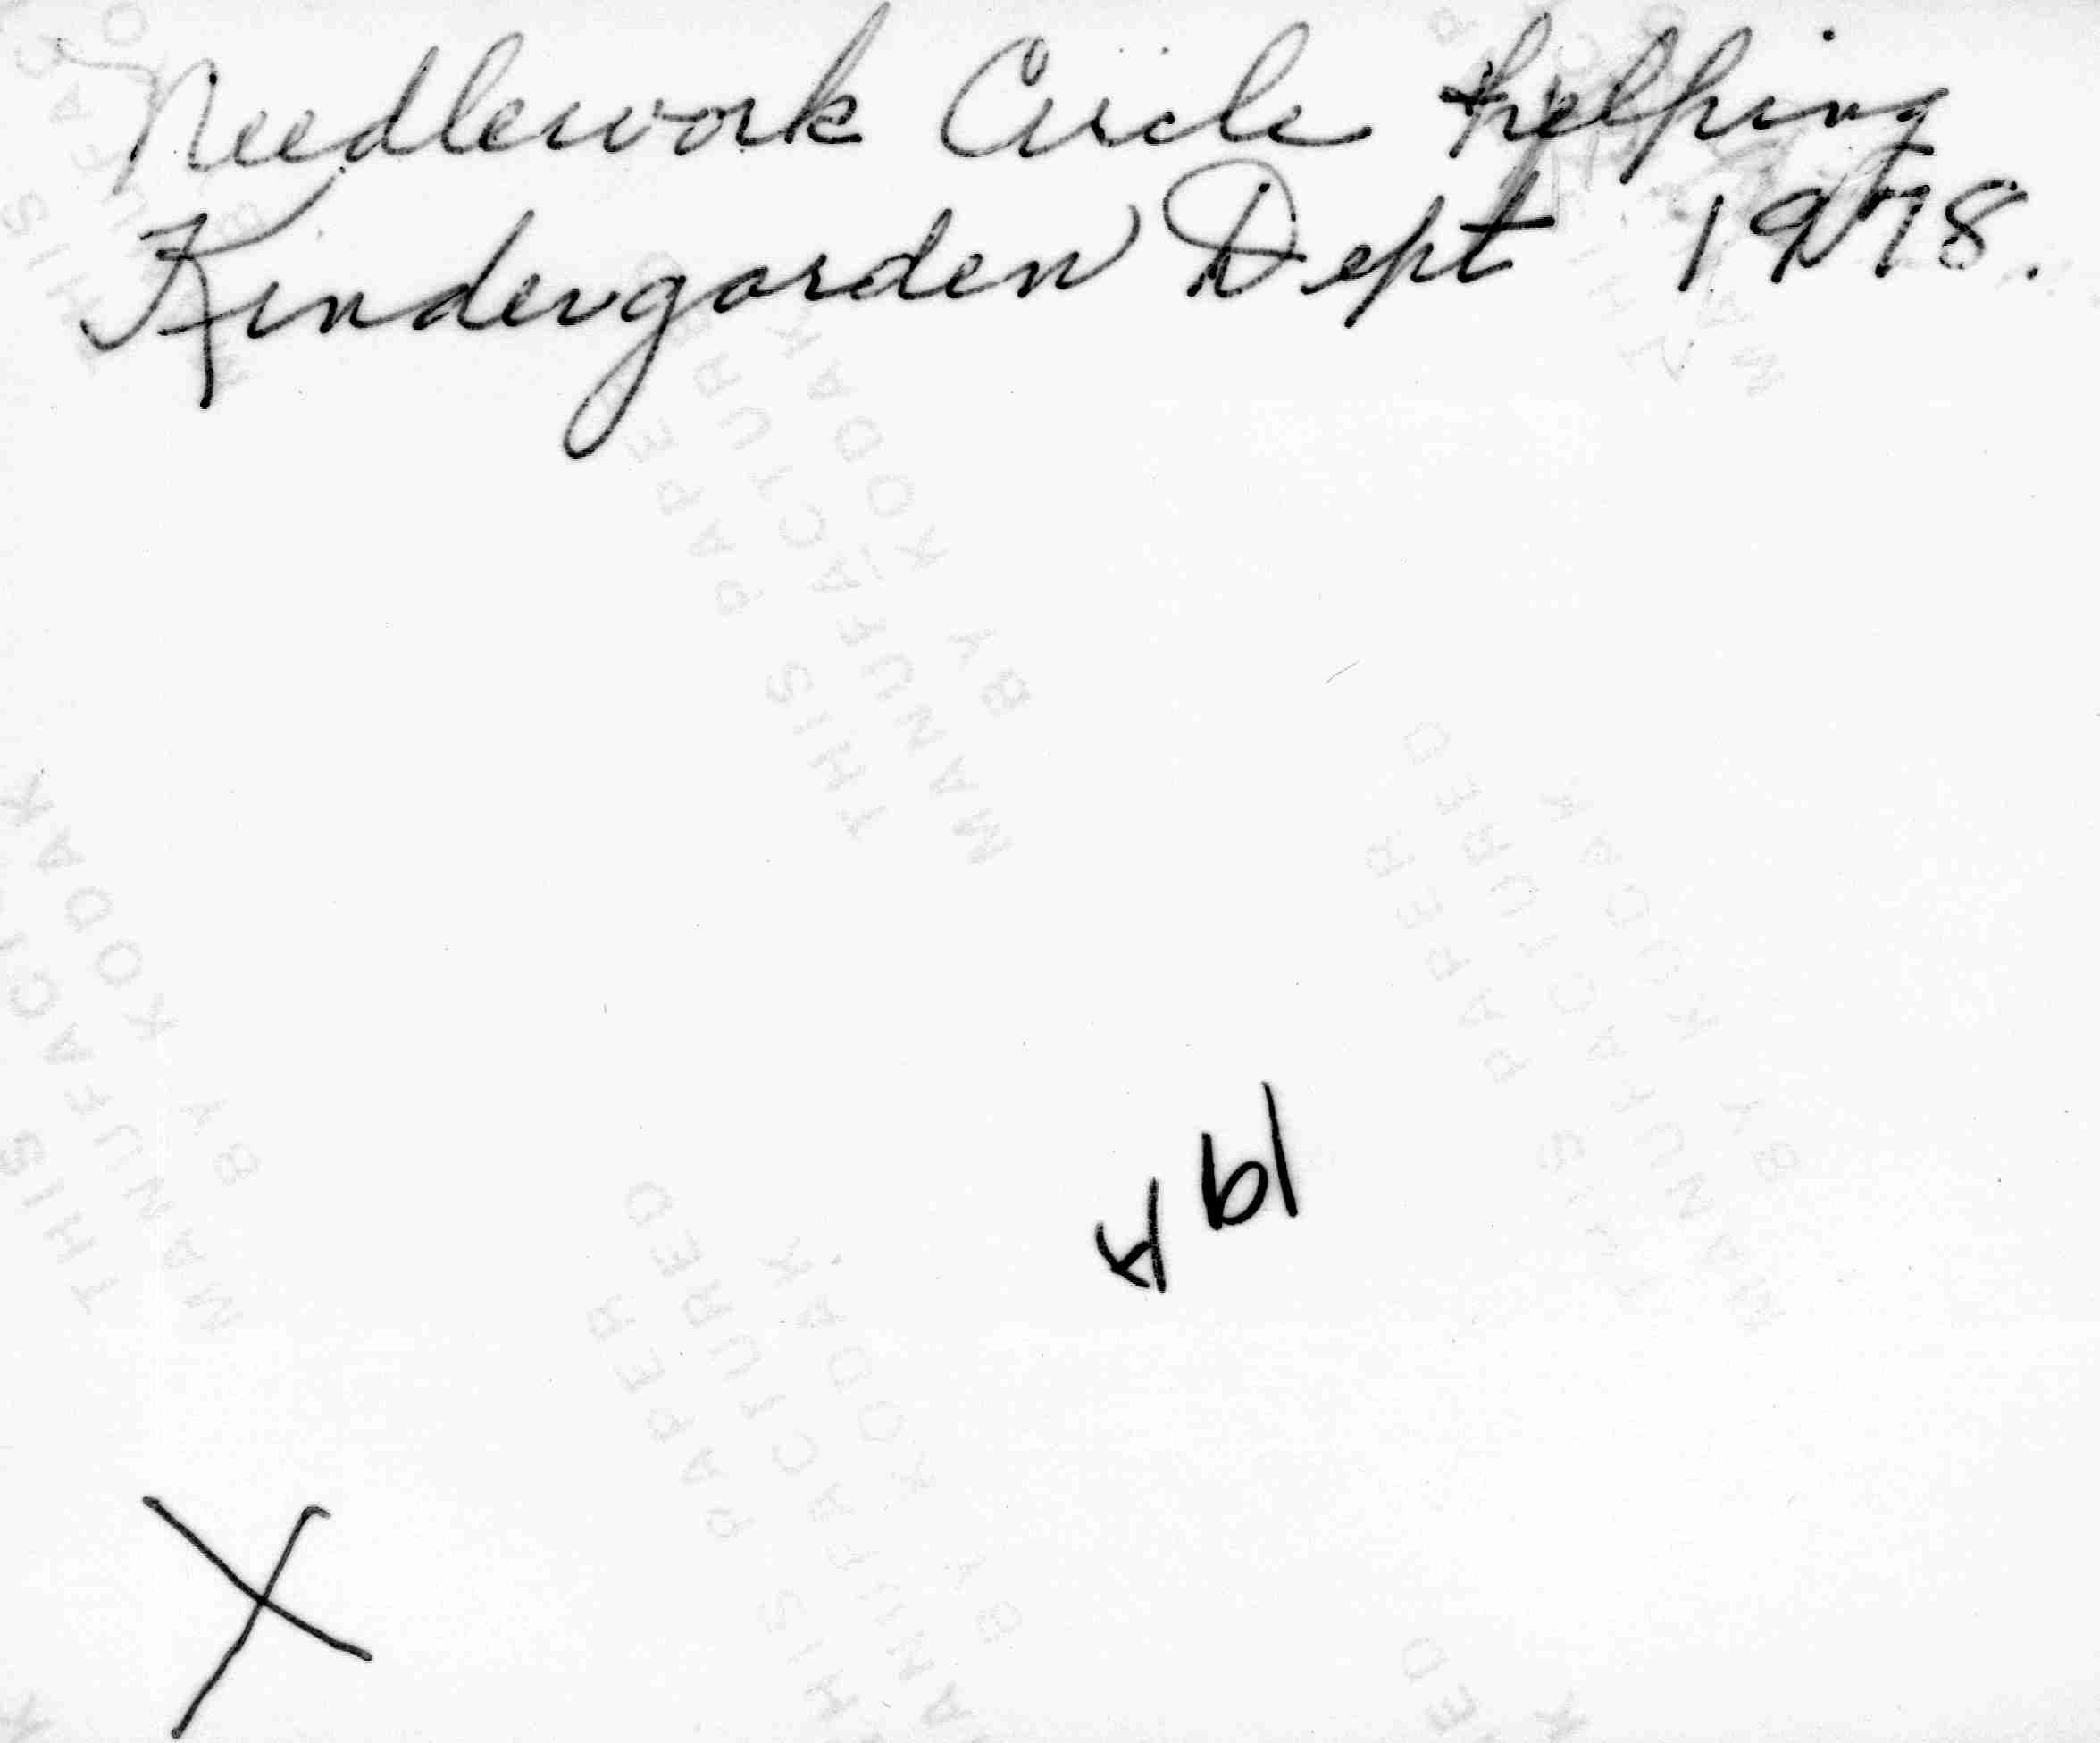 Needlework Circle helping
Kindergarden Dept 1978.
THIS PAPER
MANUFACTURED
BY KODAK
THIS PAPER
MANUFACTURED
BY KODAK
THIS PAPER
MANUFACTURED
BY KODAK
19
X